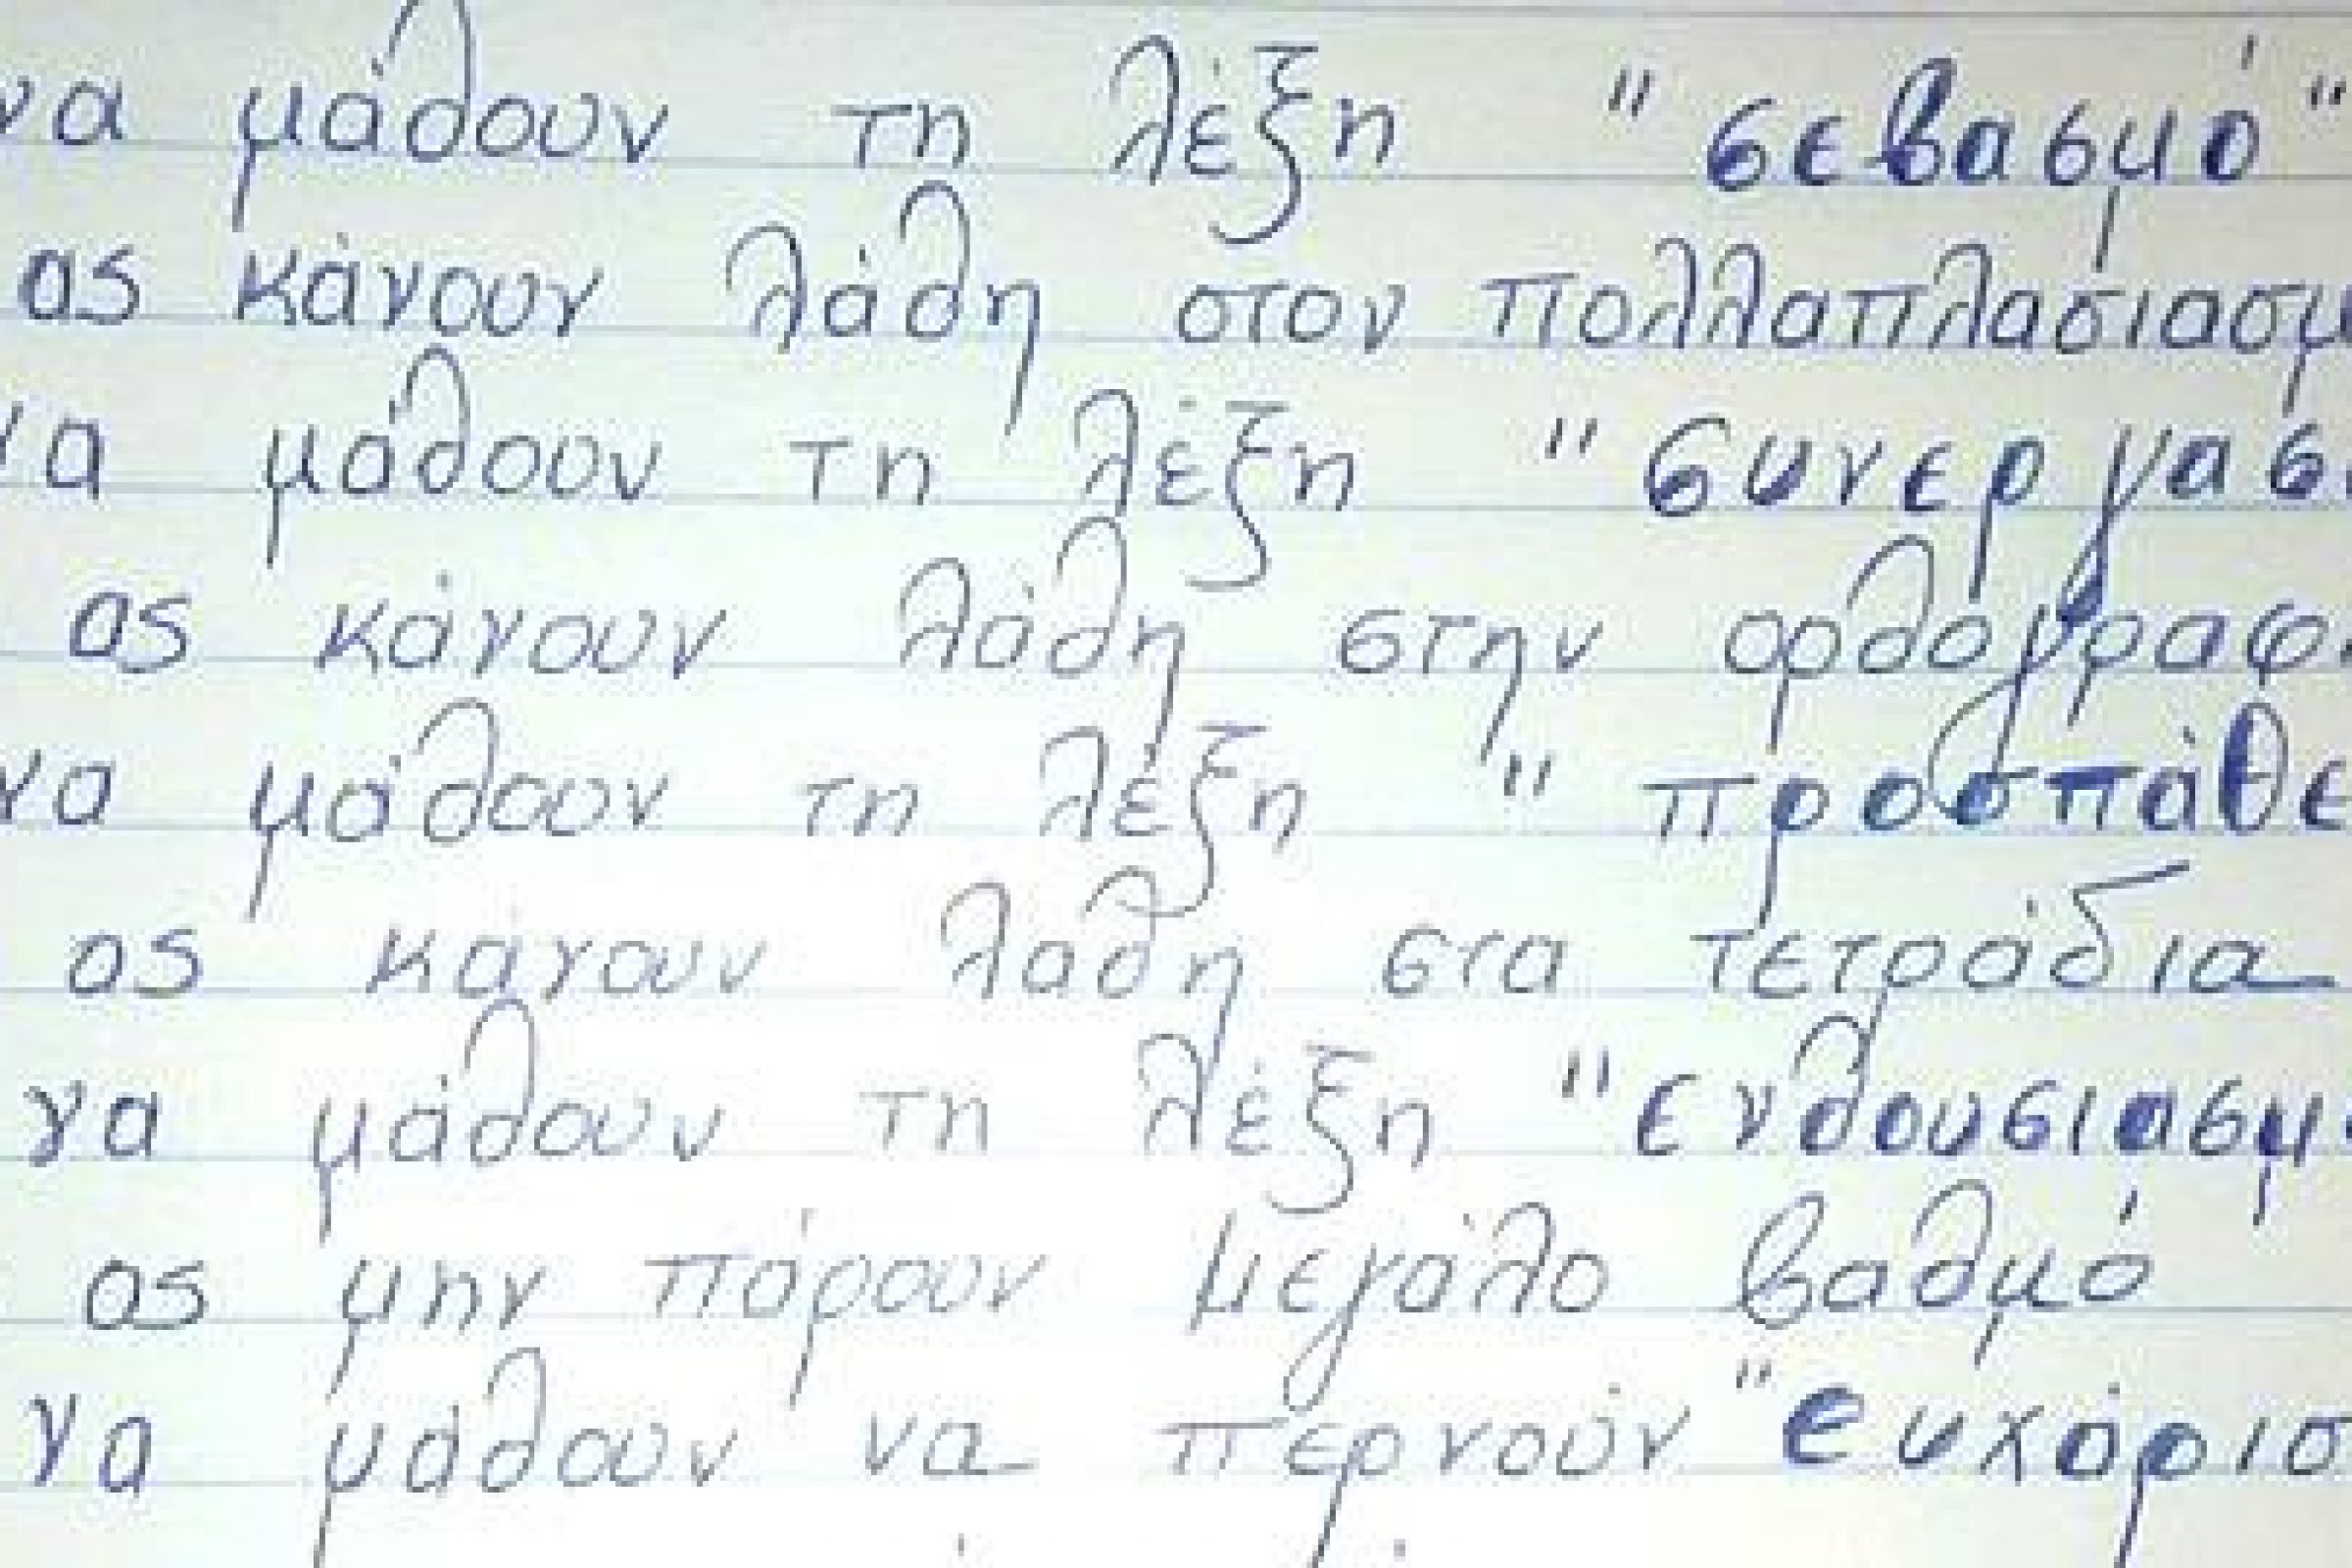 να μάθουν τη λέξη "σεβασμό"
ας κάνουν λάθη στον πολλαπλασιασμ
να μάθουν τη λέξη "συνεργασ
ας κάνουν λάθη στην ορθογραφ
να μάθουν τη λέξη "προσπάθε
ας κάνουν λάθη στα τετράδια
να μάθουν τη λέξη "ενθουσιασμ
ας μην πάρουν μεγάλο βαθμό
να μάθουν να περνούν "ευχάρισ